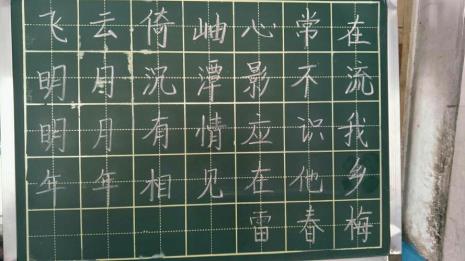 飞云倚岫心常在
明月沉潭影不流
明月有情应识我
年年相见在他乡
雷春梅